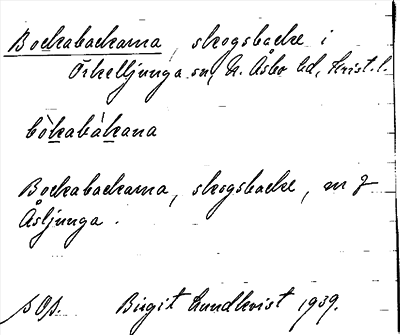 Bockabackarna, skogsbacke i
Örkelljunga sn, N. Åsbo hd, Krist. l.
bo̍kabákana
Bockabackarna, skogsbacke, m
Åsljunga.
Birgit Lundkvist 1939.